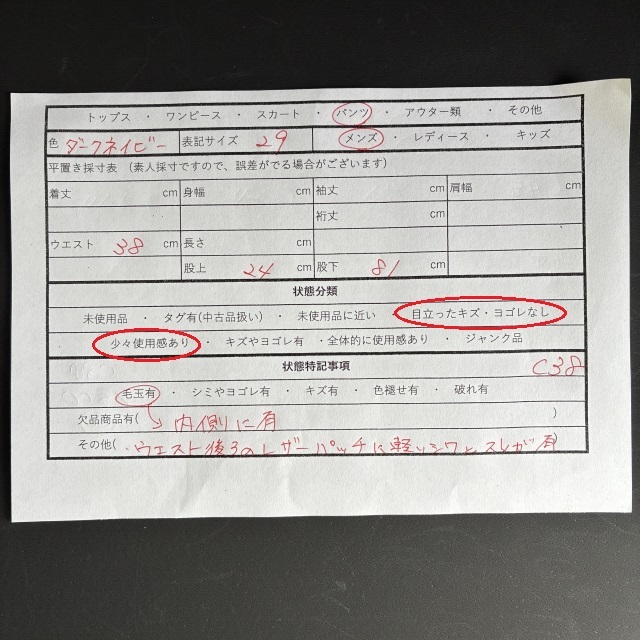 トップス ・ ワンピース ・ スカート ・ パンツ ・ アウター類 ・ その他
色 ダークネイビー 表記サイズ 29 メンズ ・ レディース ・ キッズ
平置き採寸表 (素人採寸ですので、誤差がでる場合がございます)
着丈 cm 身幅 cm 袖丈 cm 肩幅 cm
裄丈 cm
ウエスト 38 cm 長さ cm
股上 24 cm 股下 81 cm
状態分類
未使用品 ・ タグ有(中古品扱い) ・ 未使用品に近い ・ 目立ったキズ・ヨゴレなし
少々使用感あり ・ キズやヨゴレ有 ・全体的に使用感あり ・ ジャンク品
状態特記事項 C38
毛玉有 ・ シミやヨゴレ有 ・ キズ有 ・ 色褪せ有 ・ 破れ有
欠品商品有( 内側に有 )
その他( ・ウエスト後ろのレザーパッチに軽いシワとスレが有